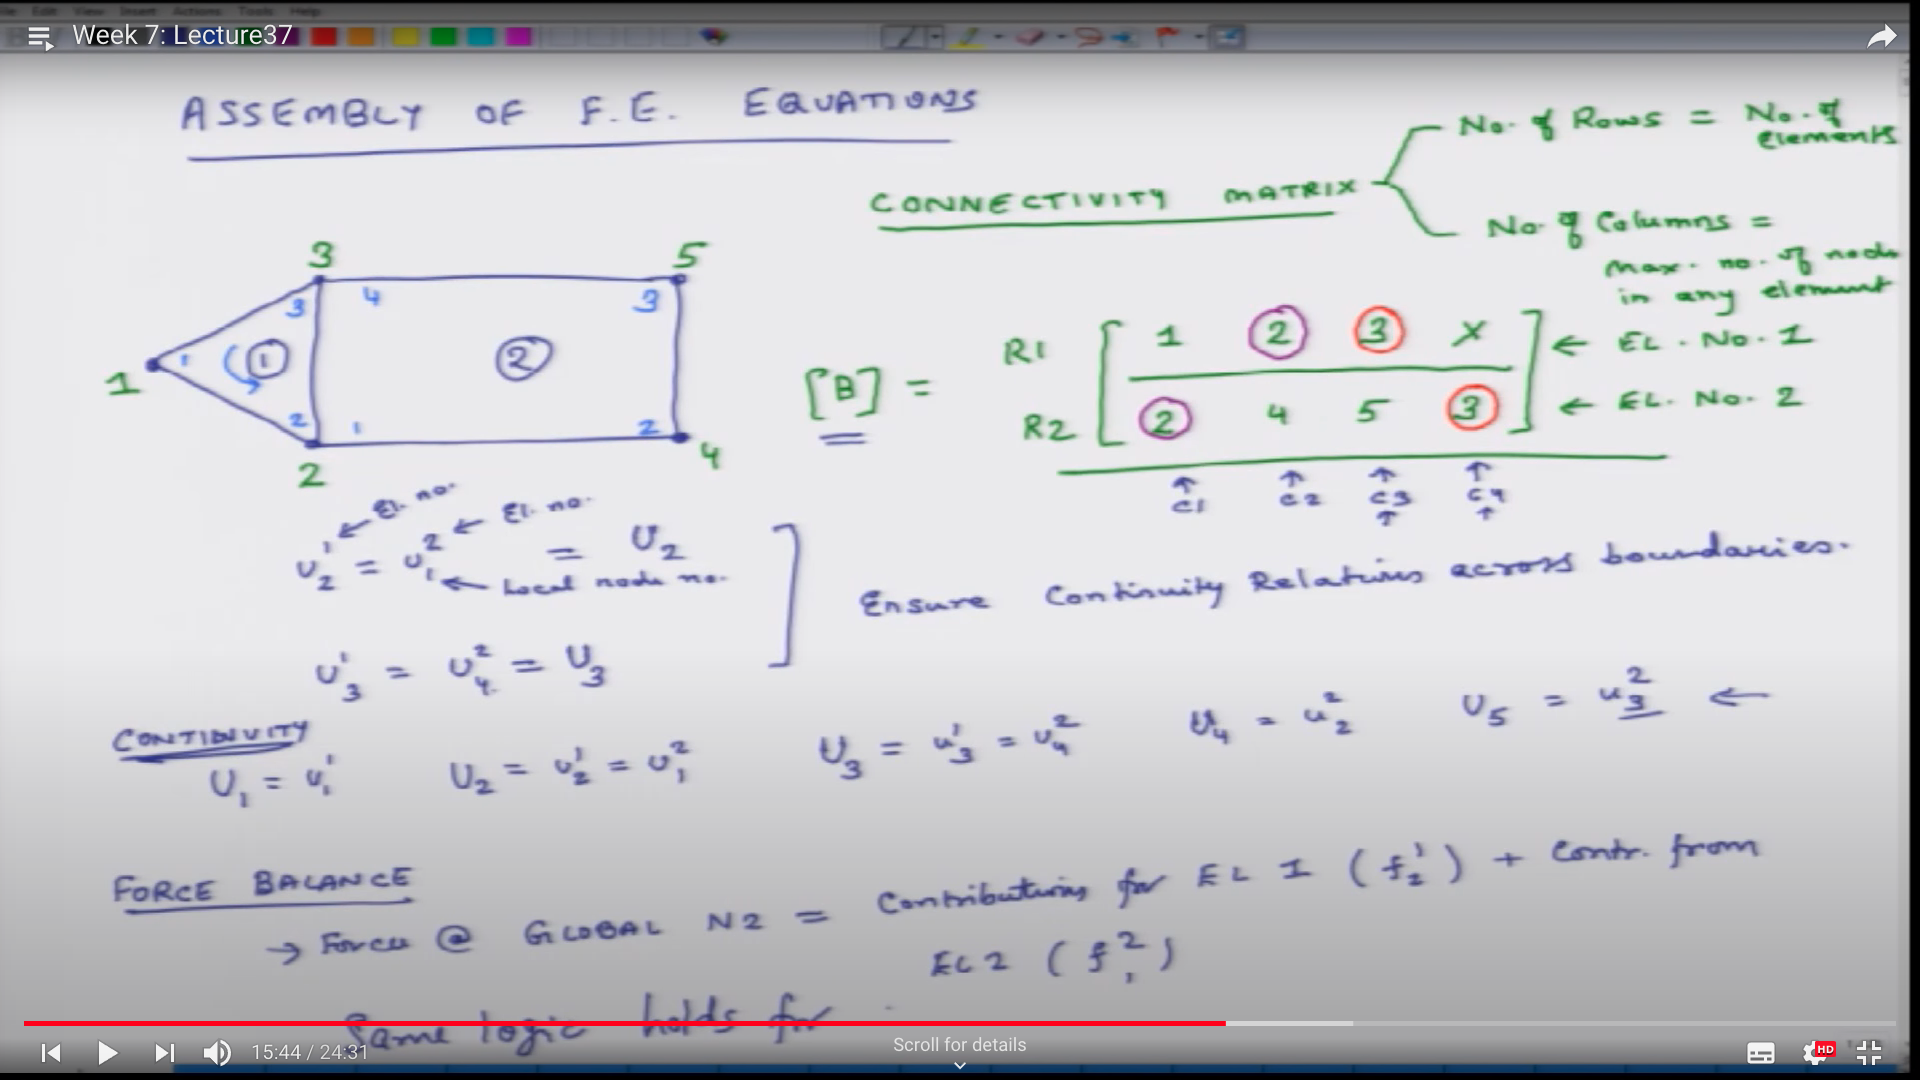 File Edit View Insert Actions Tools Help
Week 7: Lecture37
ASSEMBLY OF F.E. EQUATIONS
CONNECTIVITY MATRIX
No. of Rows = No. of Elements
No. of Columns =
max. no. of node
in any element
3 5
3 4 3
1 1 1 2
2 1 2
2 4
[B] =
R1 1 2 3 X ← EL. No. 1
R2 2 4 5 3 ← EL. No. 2
↑ ↑ ↑ ↑
C1 C2 C3 C4
↑ ↑
El. no. El. no.
u₂¹ = u₁² = U₂
← Local node no.
u₃¹ = u₄² = U₃
Ensure Continuity Relations across boundaries.
CONTINUITY
U₁ = u₁¹ U₂ = u₂¹ = u₁² U₃ = u₃¹ = u₄² U₄ = u₂² U₅ = u₃² ←
FORCE BALANCE
→ Force @ GLOBAL N2 = Contributions for EL 1 (f₂¹) + Contr. from
EL2 (f₁²)
Same logic holds for
15:44 / 24:31
Scroll for details
HD